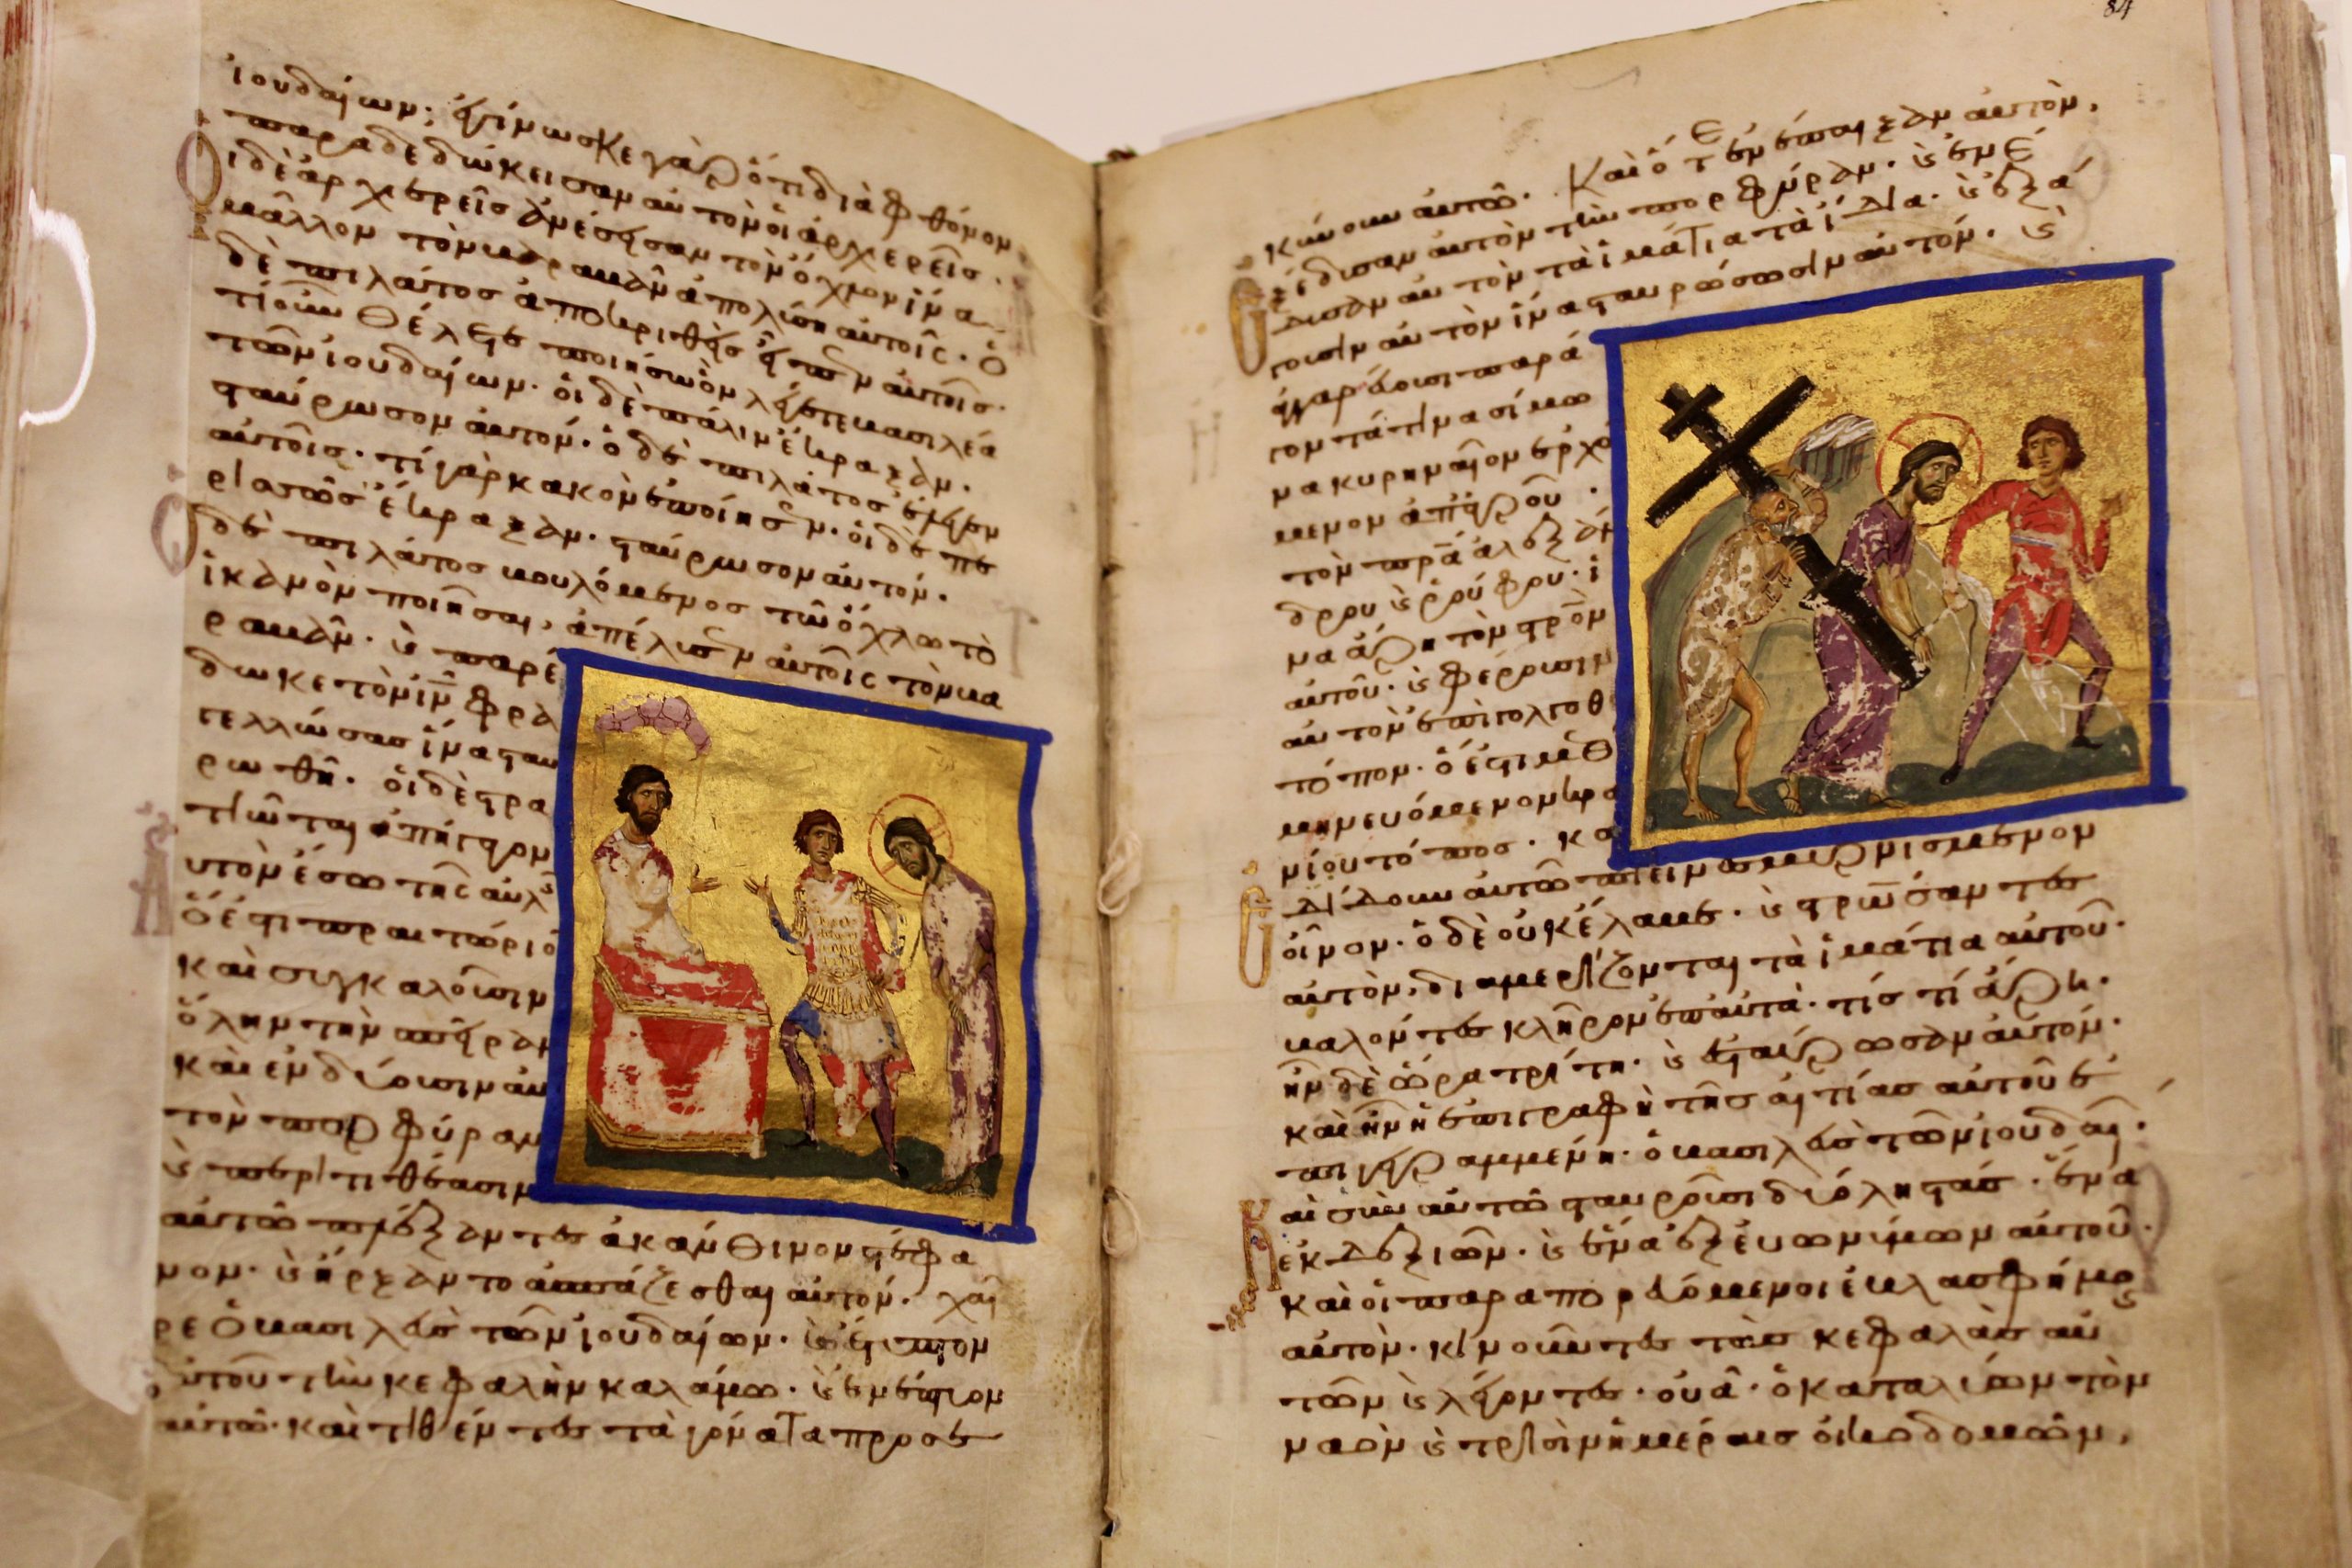 ἰουδαίων; ἐγίνωσκε γὰρ ὅτι διὰ φθόνον
παραδεδώκεισαν αὐτὸν οἱ ἀρχιερεῖς.
Οἱ δὲ ἀρχιερεῖς ἀνέσεισαν τὸν ὄχλον ἵνα
μᾶλλον τὸν βαραββᾶν ἀπολύσῃ αὐτοῖς. ὁ
δὲ πιλάτος ἀποκριθεὶς εἶπεν αὐτοῖς.
τί οὖν θέλετε ποιήσω ὃν λέγετε βασιλέα
τῶν ἰουδαίων. οἱ δὲ πάλιν ἔκραξαν.
σταύρωσον αὐτόν. ὁ δὲ πιλάτος ἔλεγεν
αὐτοῖς. τί γὰρ κακὸν ἐποίησεν. οἱ δὲ πε
ρισσῶς ἔκραξαν. σταύρωσον αὐτόν.
Ὁ δὲ πιλάτος βουλόμενος τῶ ὄχλω τὸ
ἱκανὸν ποιῆσαι, ἀπέλυσεν αὐτοῖς τὸν βα
ραββᾶν. καὶ παρέ
δωκε τὸν ἰν φρα
γελλώσας ἵνα σταυ
ρωθῆ. οἱ δὲ στρα
τιῶται ἀπήγαγον
αὐτὸν ἔσω τῆς αὐλῆς
ὅ ἐστι πραιτώριο
καὶ συγκαλοῦσιν
ὅλην τὴν σπεῖραν
καὶ ἐνδύουσιν αὐ
τὸν πορφύραν
καὶ περιτιθέασιν
αὐτῶ πλέξαντες ἀκάνθινον στέφα
νον. καὶ ἤρξαντο ἀσπάζεσθαι αὐτόν. χαῖ
ρε ὁ βασιλεὺς τῶν ἰουδαίων. καὶ ἔτυπτον
αὐτοῦ τὴν κεφαλὴν καλάμω. καὶ ἐνέπτυον
αὐτῶ. καὶ τιθέντες τὰ γόνατα προσε
84
κύνουν αὐτῶ. Καὶ ὅτε ἐνέπαιξαν αὐτὸν,
ἐξέδυσαν αὐτὸν τὴν πορφύραν. καὶ ἐνέ
δυσαν αὐτὸν τὰ ἱμάτια τὰ ἴδια. καὶ ἐξά
γουσιν αὐτὸν ἵνα σταυρώσωσιν αὐτόν. καὶ
ἀγγαρεύουσι παρά
γοντά τινα σίμω
να κυρηναῖον ἐρχό
μενον ἀπ ἀγροῦ.
τὸν πρα ἀλεξάν
δρου καὶ ῥούφου. ἵ
να ἄρη τὸν στρον
αὐτοῦ. καὶ φέρουσιν
αὐτὸν ἐπὶ γολγοθ
τόπον. ὅ ἐστι μεθ
ερμηνευόμενον κρα
νίου τόπος. κα
ἐδίδουν αὐτῶ πιεῖν ἐσμυρνισμένον
οἶνον. ὁ δὲ οὐκ ἔλαβε. καὶ στρώσαντες
αὐτὸν, διαμερίζονται τὰ ἱμάτια αὐτοῦ.
βαλόντες κλῆρον ἐπ αὐτὰ. τίς τί ἄρη.
ἦν δὲ ὥρα τρίτη. καὶ ἐσταύρωσαν αὐτόν.
καὶ ἦν ἡ ἐπιγραφὴ τῆς αἰτίας αὐτοῦ ἐ
πιγεγραμμένη. ὁ βασιλεὺς τῶν ἰουδαί.
Καὶ σὺν αὐτῶ σταυροῦσι δύο ληστάς. ἕνα
ἐκ δεξιῶν. καὶ ἕνα ἐξ εὐωνύμων αὐτοῦ.
καὶ οἱ παραπορευόμενοι ἐβλασφήμουν
αὐτὸν. κινοῦντες τὰς κεφαλὰς αὐ
τῶν καὶ λέγοντες. οὐᾶ. ὁ καταλύων τὸν
ναὸν καὶ τρισὶν ἡμέραις οἰκοδομῶν,